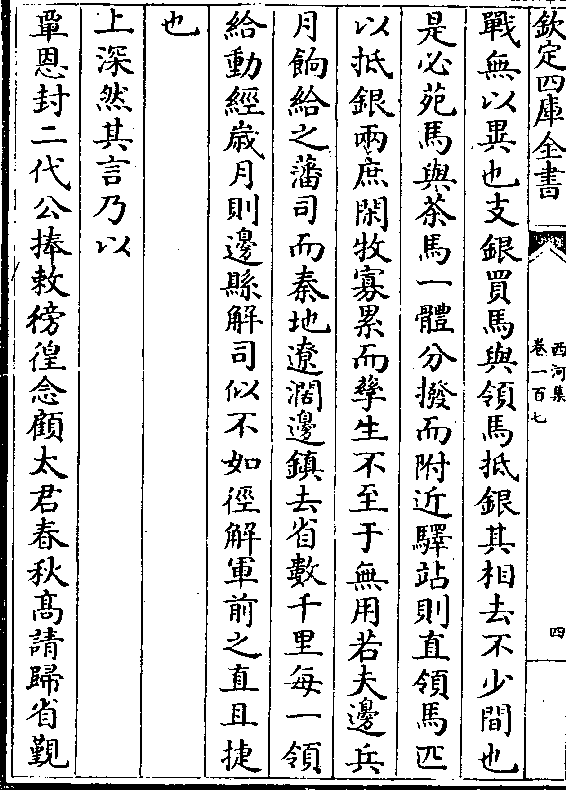 欽定四庫全書
西河集
卷一百七
四
戰無以異也支銀買馬與領馬抵銀其相去不少間也
是必苑馬與茶馬一體分撥而附近驛站則直領馬匹
以抵銀兩庶閑牧寡累而孳生不至于無用若夫邊兵
月餉給之藩司而秦地遼濶邊鎮去省數千里每一領
給動經歲月則邊縣解司似不如徑解軍前之直且捷
也
上深然其言乃以
覃恩封二代公捧敕徬徨念顧太君春秋髙請歸省覲